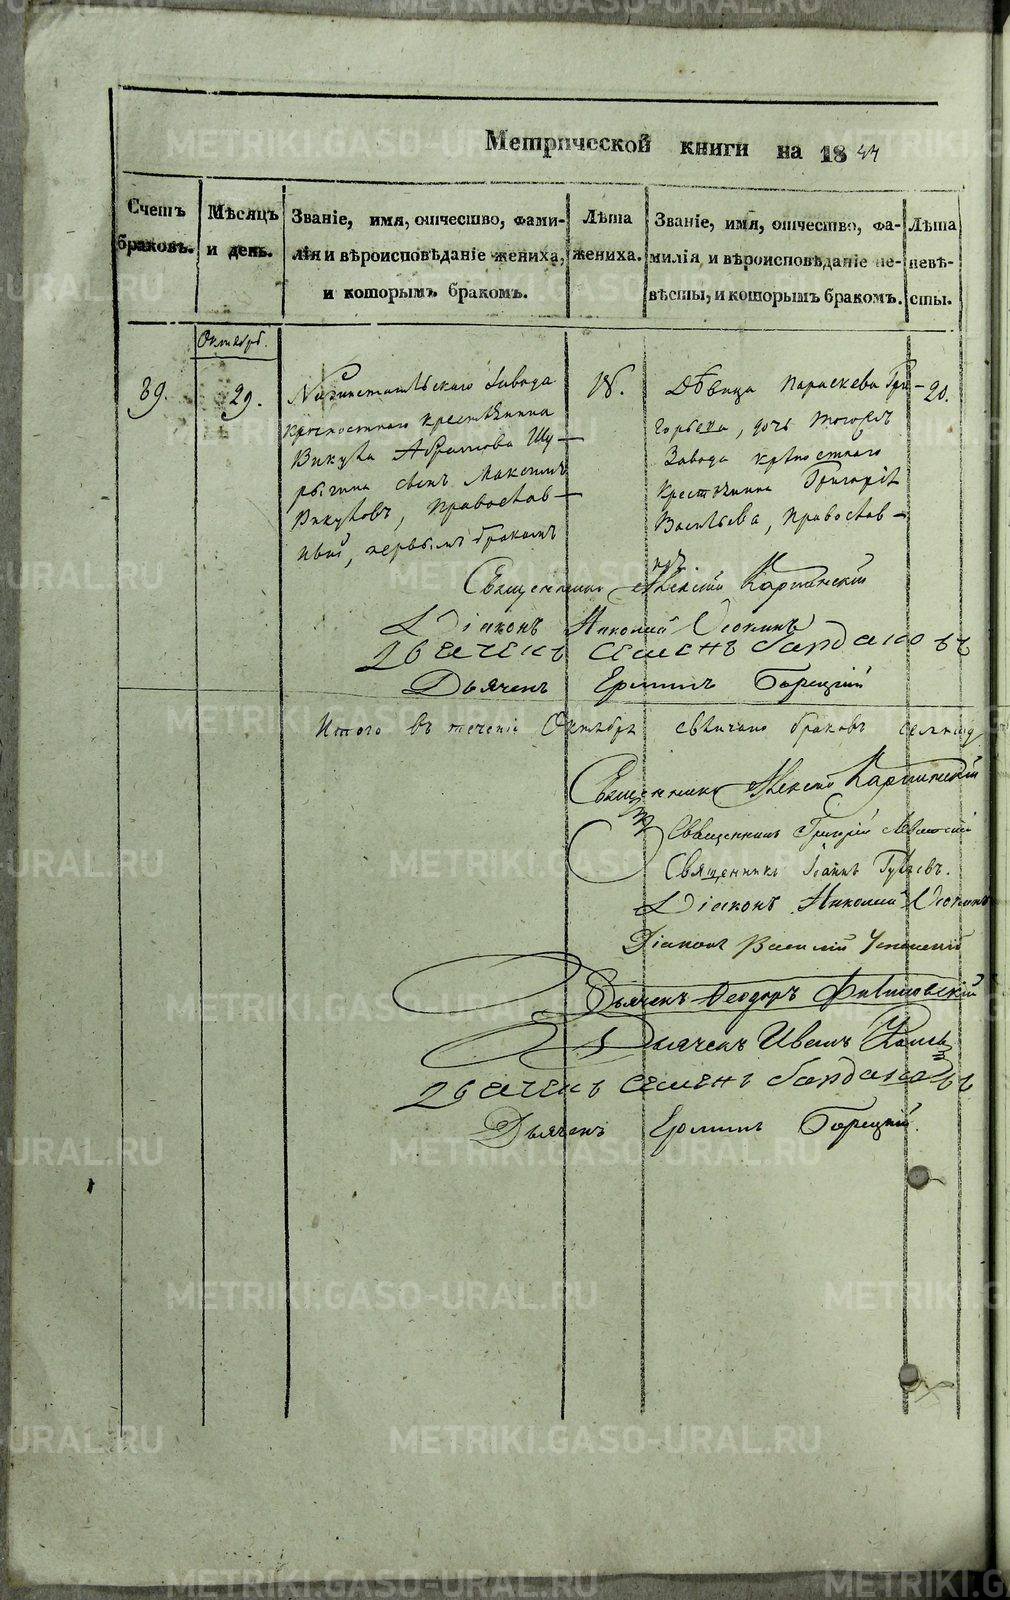 Метрической книги на 1844
Счетъ браковъ.
Мѣсяцъ и день.
Званіе, имя, отчество, фами-
лія и вѣроисповѣданіе жениха,
и которымъ бракомъ.
Лѣта
жениха.
Званіе, имя, отчество, фа-
милія и вѣроисповѣданіе не-
вѣсты, и которымъ бракомъ.
Лѣта
невѣ-
сты.
Октябр.
39.
29.
Завода
крѣпостнаго крестьянина
Викула Абрамова Шу-
рыгина сынъ Максимъ
Викуловъ, Православ-
ный, первымъ бракомъ
18.
Дѣвица Параскева Гри-
горьева, дочь тогожъ
Завода крѣпостнаго
крестьянина Григорія
Васильева, Православ-
ная
20.
Священникъ Алексій Карпинскій
Діаконъ Николай
Дьячекъ Семенъ Бардаковъ
Дьячекъ Ермилъ Борецкій
Итого въ теченіе Октября свѣнчано браковъ
Священникъ Алексій Карпинскій
Священникъ Григорій
Священникъ Іоаннъ
Діаконъ Николай
Діаконъ Василій Успенскій
Дьячекъ Ѳеодоръ
Дьячекъ Иванъ
Дьячекъ Семенъ Бардаковъ
Дьячекъ Ермилъ Борецкій.
METRIKI.GASO-URAL.RU